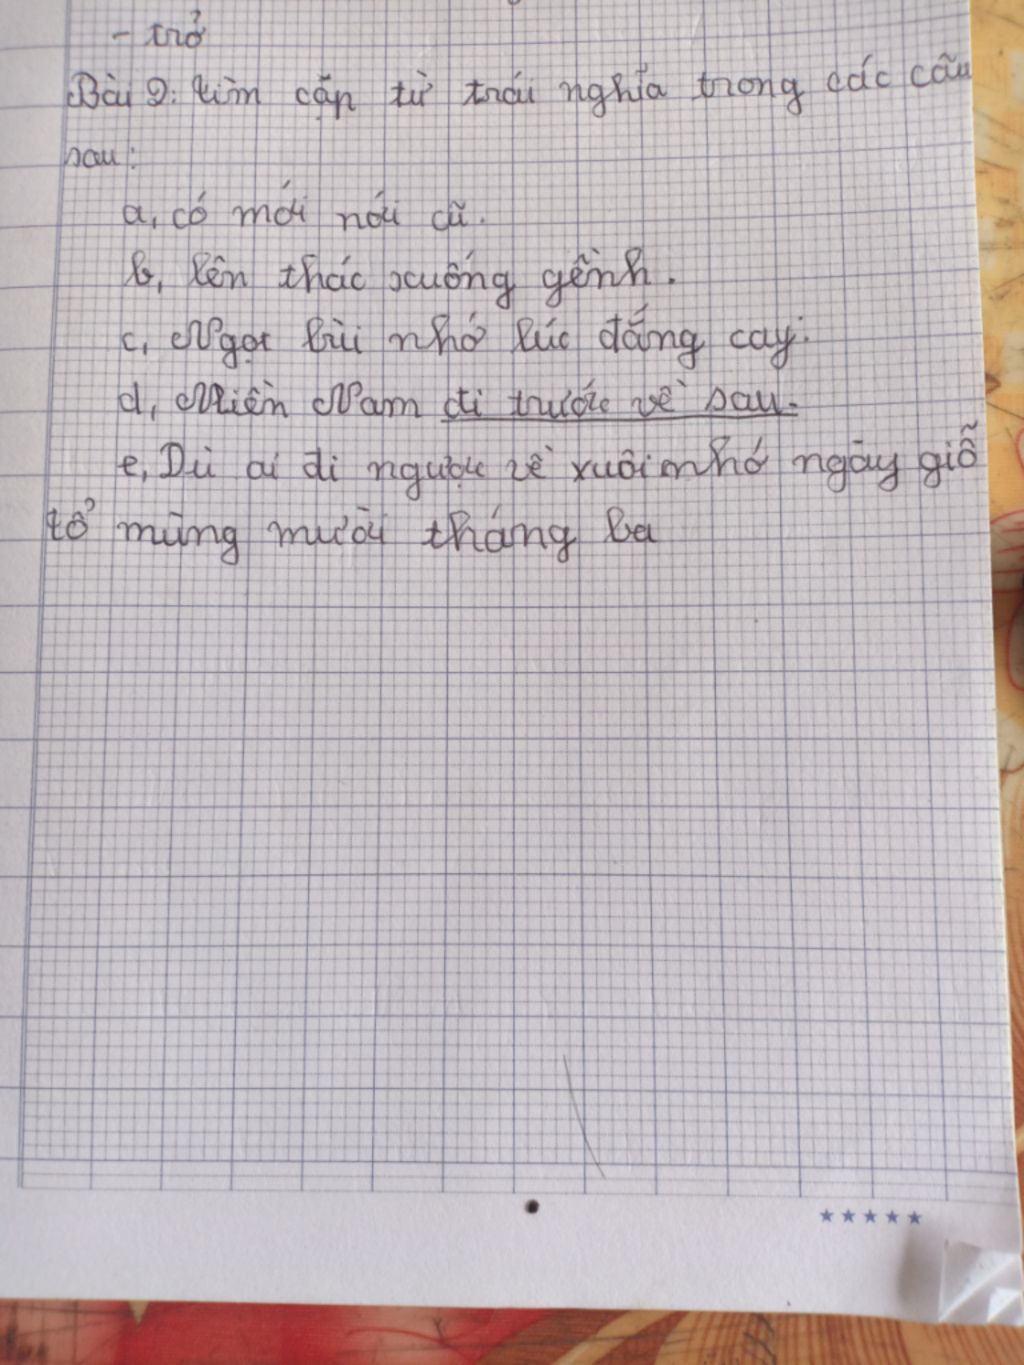 - trở
Bài 2: tìm cặp từ trái nghĩa trong các câu
sau:
a, có mới nới cũ.
b, lên thác xuống gềnh.
c, Ngọt bùi nhớ lúc đắng cay.
d, Miền Nam đi trước về sau.
e, Dù ai đi ngược về xuôi nhớ ngày giỗ
tổ mùng mười tháng ba